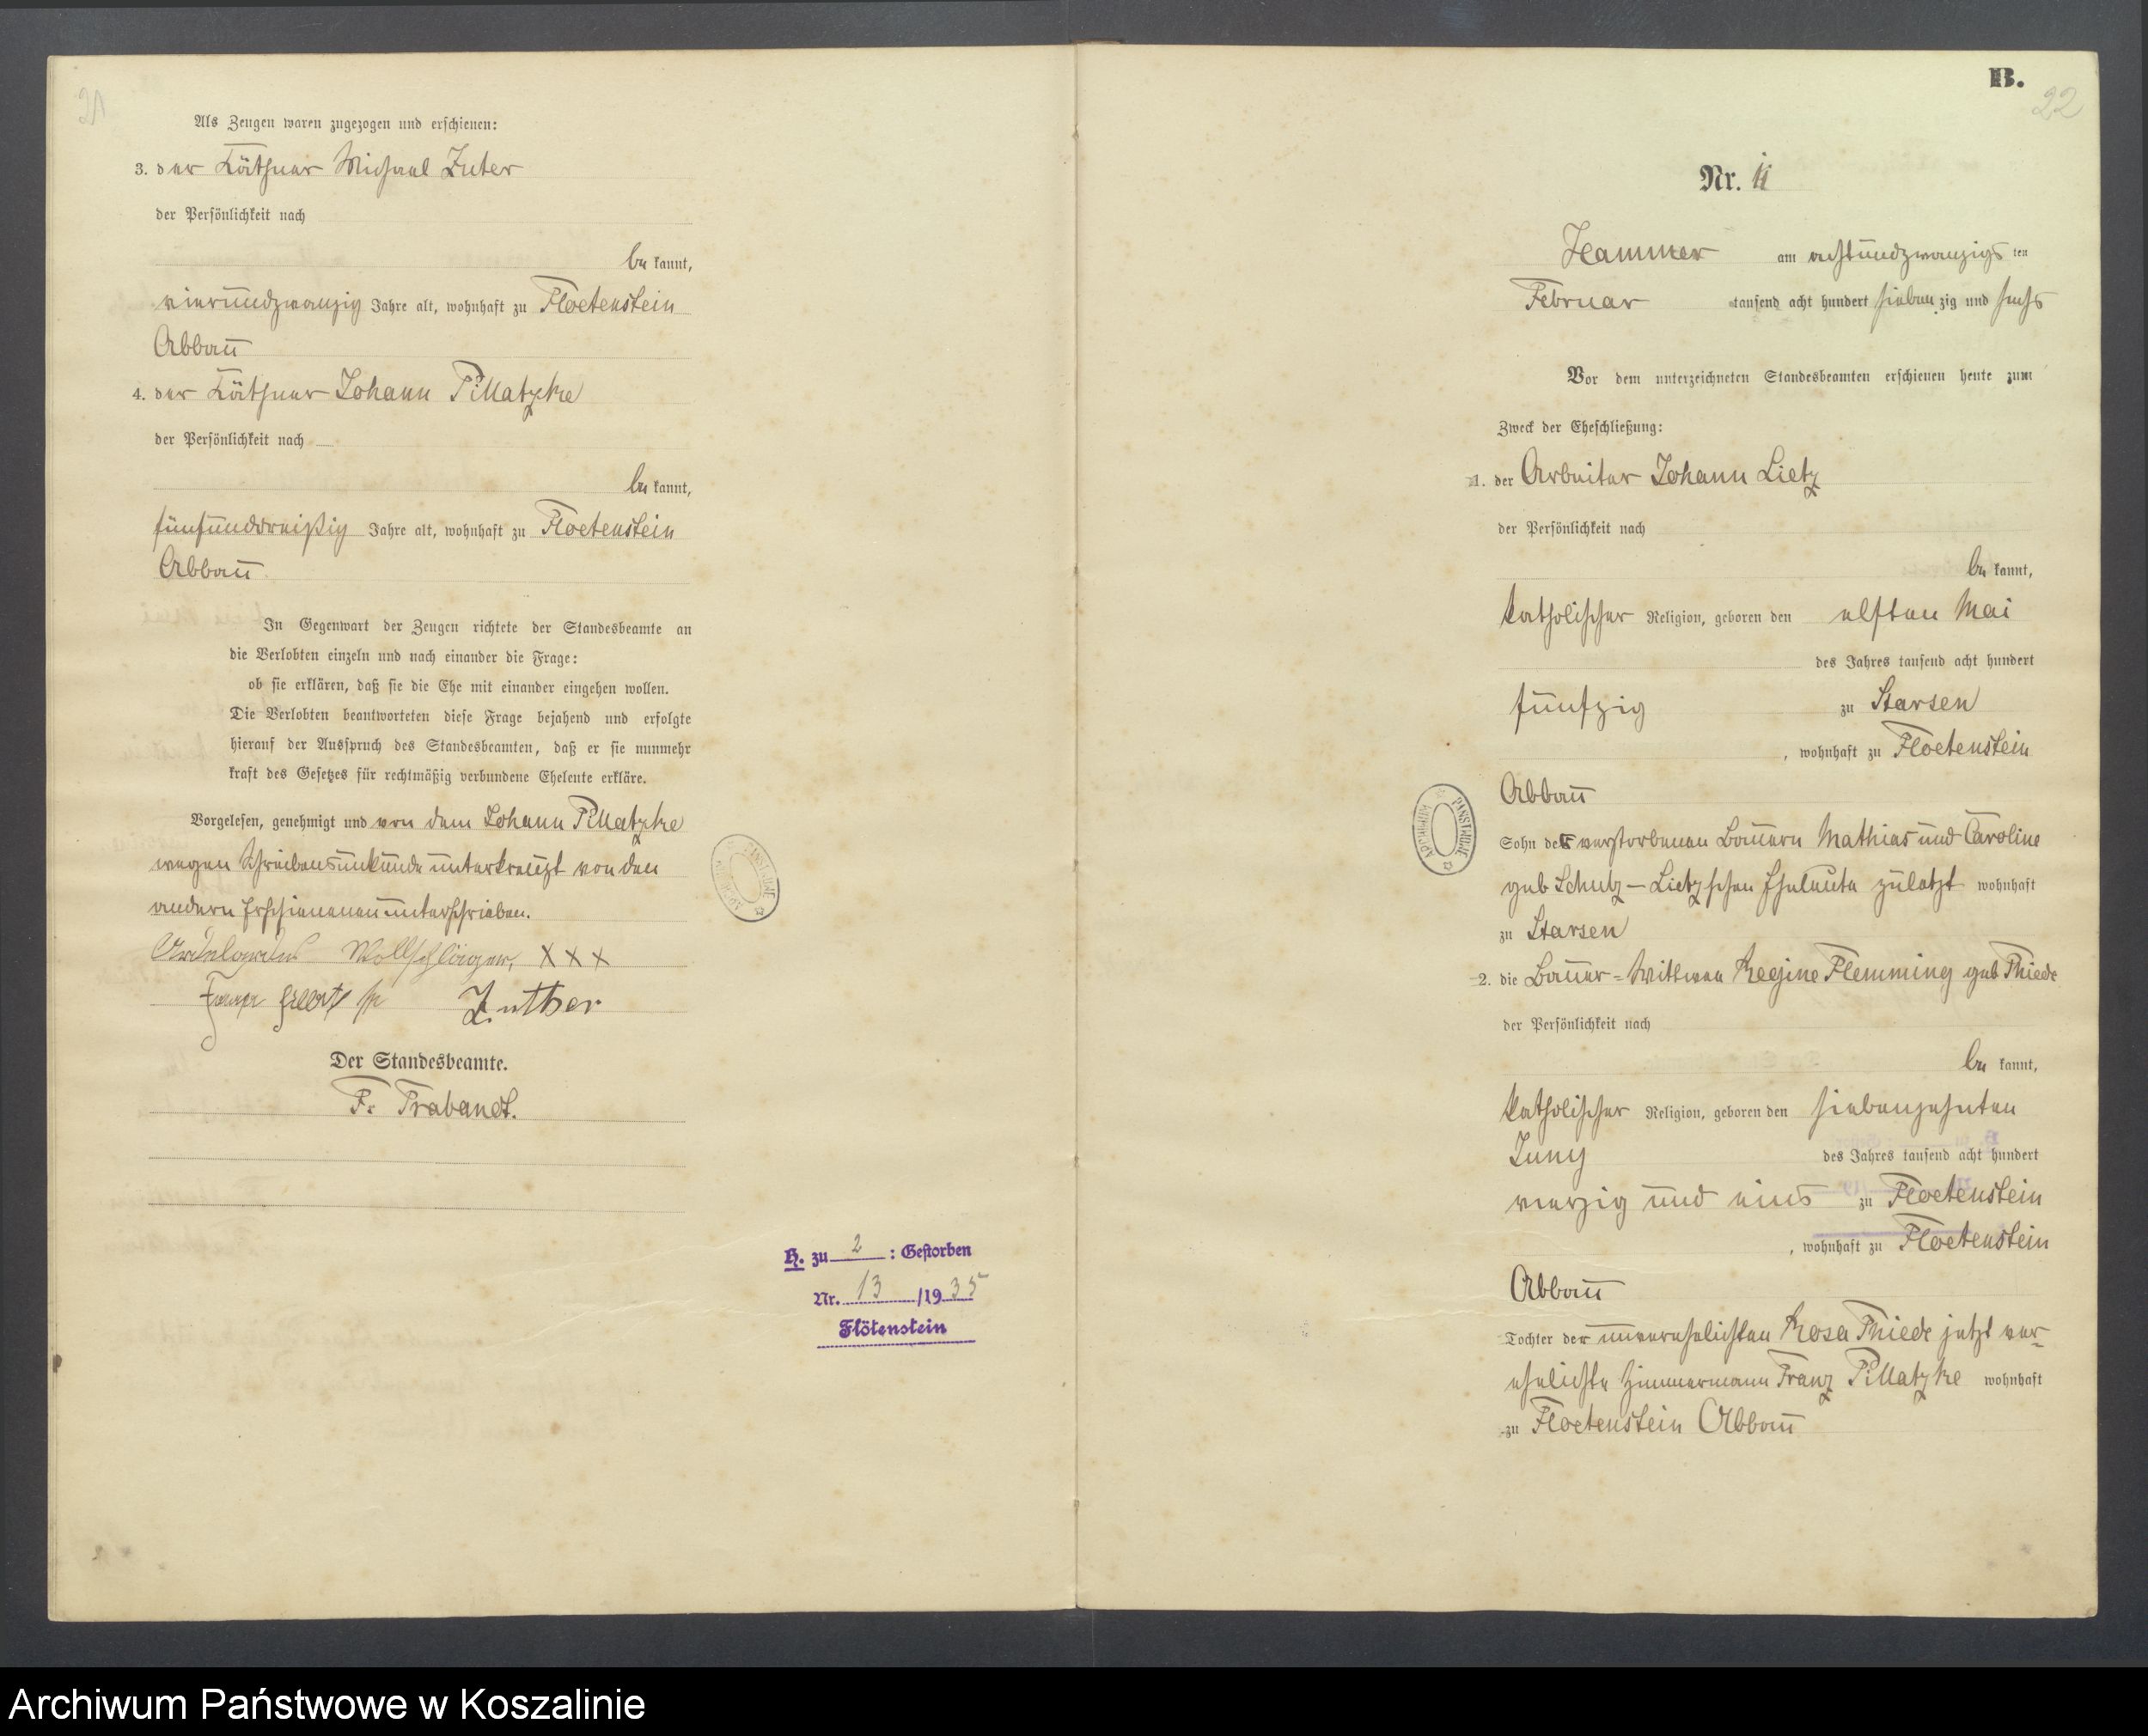 21
Als Zeugen waren zugezogen und erschienen:
3. der Käthner Michael Zuter
der Persönlichkeit nach
be kannt,
vierundzwanzig Jahre alt, wohnhaft zu Floetenstein
Abbau
4. der Käthner Johann Pillatzke
der Persönlichkeit nach
be kannt,
fünfunddreißig Jahre alt, wohnhaft zu Floetenstein
Abbau
In Gegenwart der Zeugen richtete der Standesbeamte an
die Verlobten einzeln und nach einander die Frage:
ob sie erklären, daß sie die Ehe mit einander eingehen wollen.
Die Verlobten beantworteten diese Frage bejahend und erfolgte
hierauf der Ausspruch des Standesbeamten, daß er sie nunmehr
kraft des Gesetzes für rechtmäßig verbundene Eheleute erkläre.
Vorgelesen, genehmigt und von dem Johann Pillatzke
wegen Schreibensunkunde unterkreuzt von den
andern Erschienenen unterschrieben.
Wollschläger, XXX
Zuther
Der Standesbeamte.
F. Trabandt.
H. zu 2 : Gestorben
Nr. 13 /1935
Flötenstein
B.
22
Nr. 4
Hammer am achtundzwanzigs ten
Februar tausend acht hundert sieben zig und sechs
Vor dem unterzeichneten Standesbeamten erschienen heute zum
Zweck der Eheschließung:
1. der Arbeiter Johann Lietz
der Persönlichkeit nach
be kannt,
katholischer Religion, geboren den elften Mai
des Jahres tausend acht hundert
fünfzig zu Starsen
, wohnhaft zu Floetenstein
Abbau
Sohn der verstorbenen Bauern Mathias und Caroline
geb Schulz – Lietzschen Eheleute zuletzt wohnhaft
zu Starsen
2. die Bauer-Wittwe Regine Flemming geb Thiede
der Persönlichkeit nach
be kannt,
katholischer Religion, geboren den siebenzehnten
Juny des Jahres tausend acht hundert
vierzig und eins zu Floetenstein
, wohnhaft zu Floetenstein
Abbau
Tochter der unverehelichten Rosa Thiede jetzt ver-
ehelichte Zimmermann Franz Pillatzke wohnhaft
zu Floetenstein Abbau
Archiwum Państwowe w Koszalinie